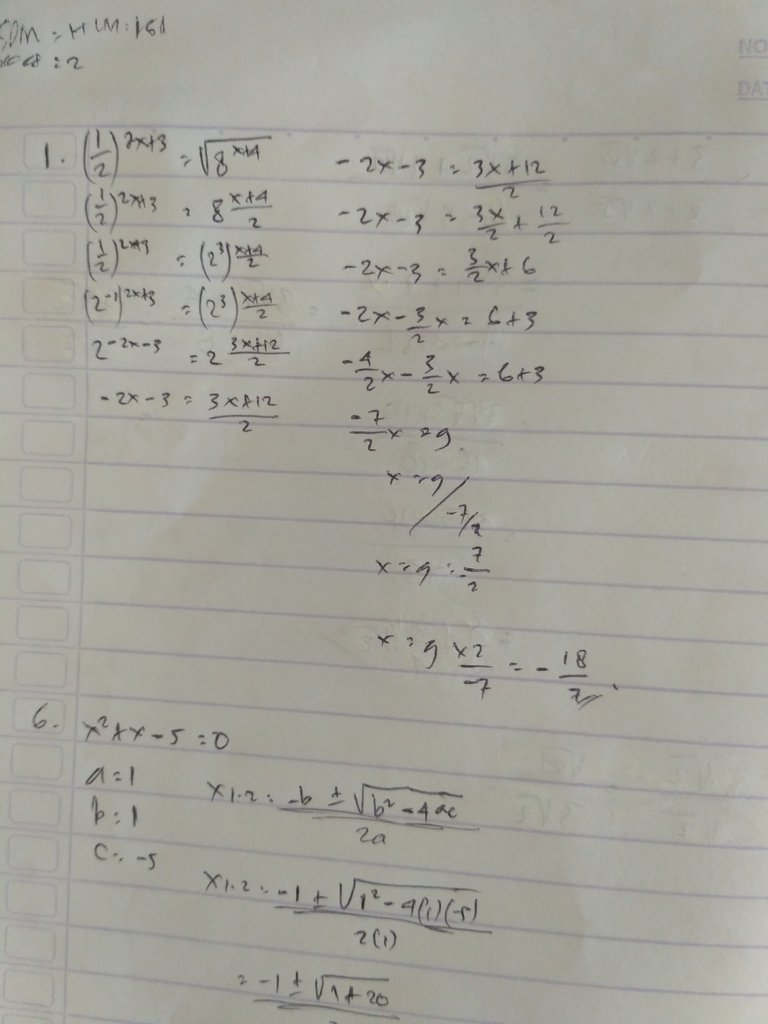 = HIM:
: 2
NO
DAT
1. (1/2)^2x+3 = √8^x+4
(1/2)^2x+3 = 8^(x+4)/2
(1/2)^2x+3 = (2^3)^(x+4)/2
(2^-1)^2x+3 = (2^3)^(x+4)/2
2^-2x-3 = 2^(3x+12)/2
-2x-3 = (3x+12)/2
-2x-3 = (3x+12)/2
-2x-3 = 3x/2 + 12/2
-2x-3 = 3/2 x + 6
-2x - 3/2 x = 6+3
-4/2 x - 3/2 x = 6+3
-7/2 x = 9.
x = 9 / -7/2
x = 9 : -7/2
x = 9 × 2/-7 = - 18/7.
6. x² + x - 5 = 0
a = 1
b = 1
c = -5
x1.2 = (-b ± √b² - 4ac)/2a
x1.2 = (-1 ± √1² - 4(1)(-5))/2(1)
= -1 ± √1+20